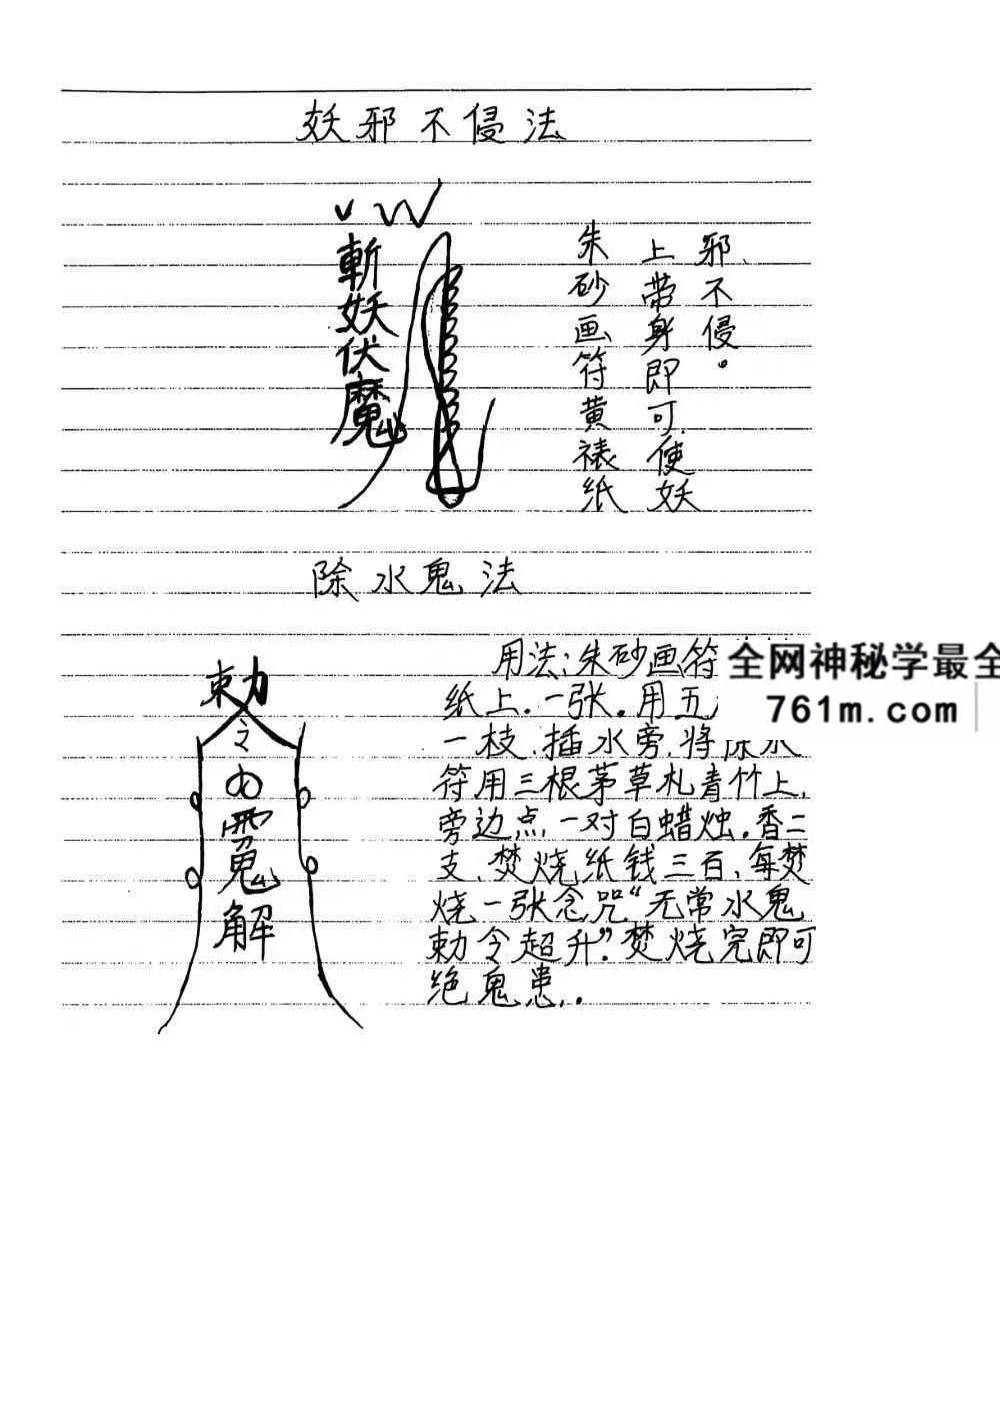 妖邪不侵法
斬妖伏魔
朱砂画符黄裱纸
上带身即可使妖
邪不侵。
除水鬼法
敕令
鬼解
用法:朱砂画符
纸上.一张.用五
一枝.插水旁.将除水
符用三根茅草札青竹上,
旁边点一对白蜡烛.香二
支、焚烧纸钱三百、每焚
烧一张念咒“无常水鬼
勅令超升”.焚烧完即可
绝鬼患.
全网神秘学最全
761m.com